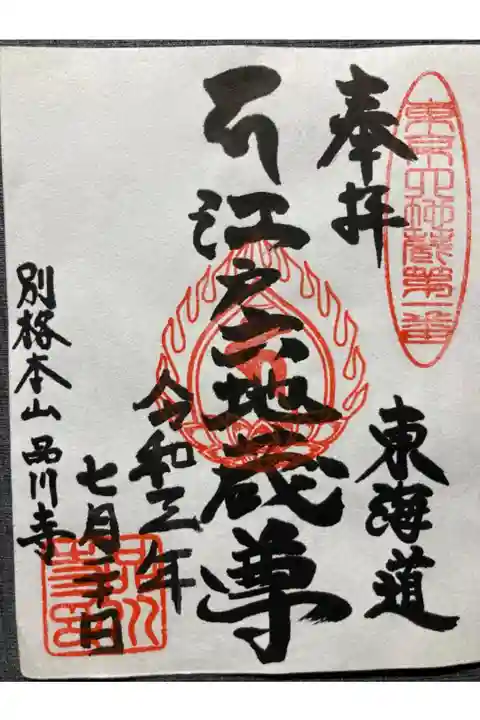 六地蔵第一番
奉拝
東海道
江戸六地蔵尊
令和三年
七月 日
別格本山 品川寺
品川寺印